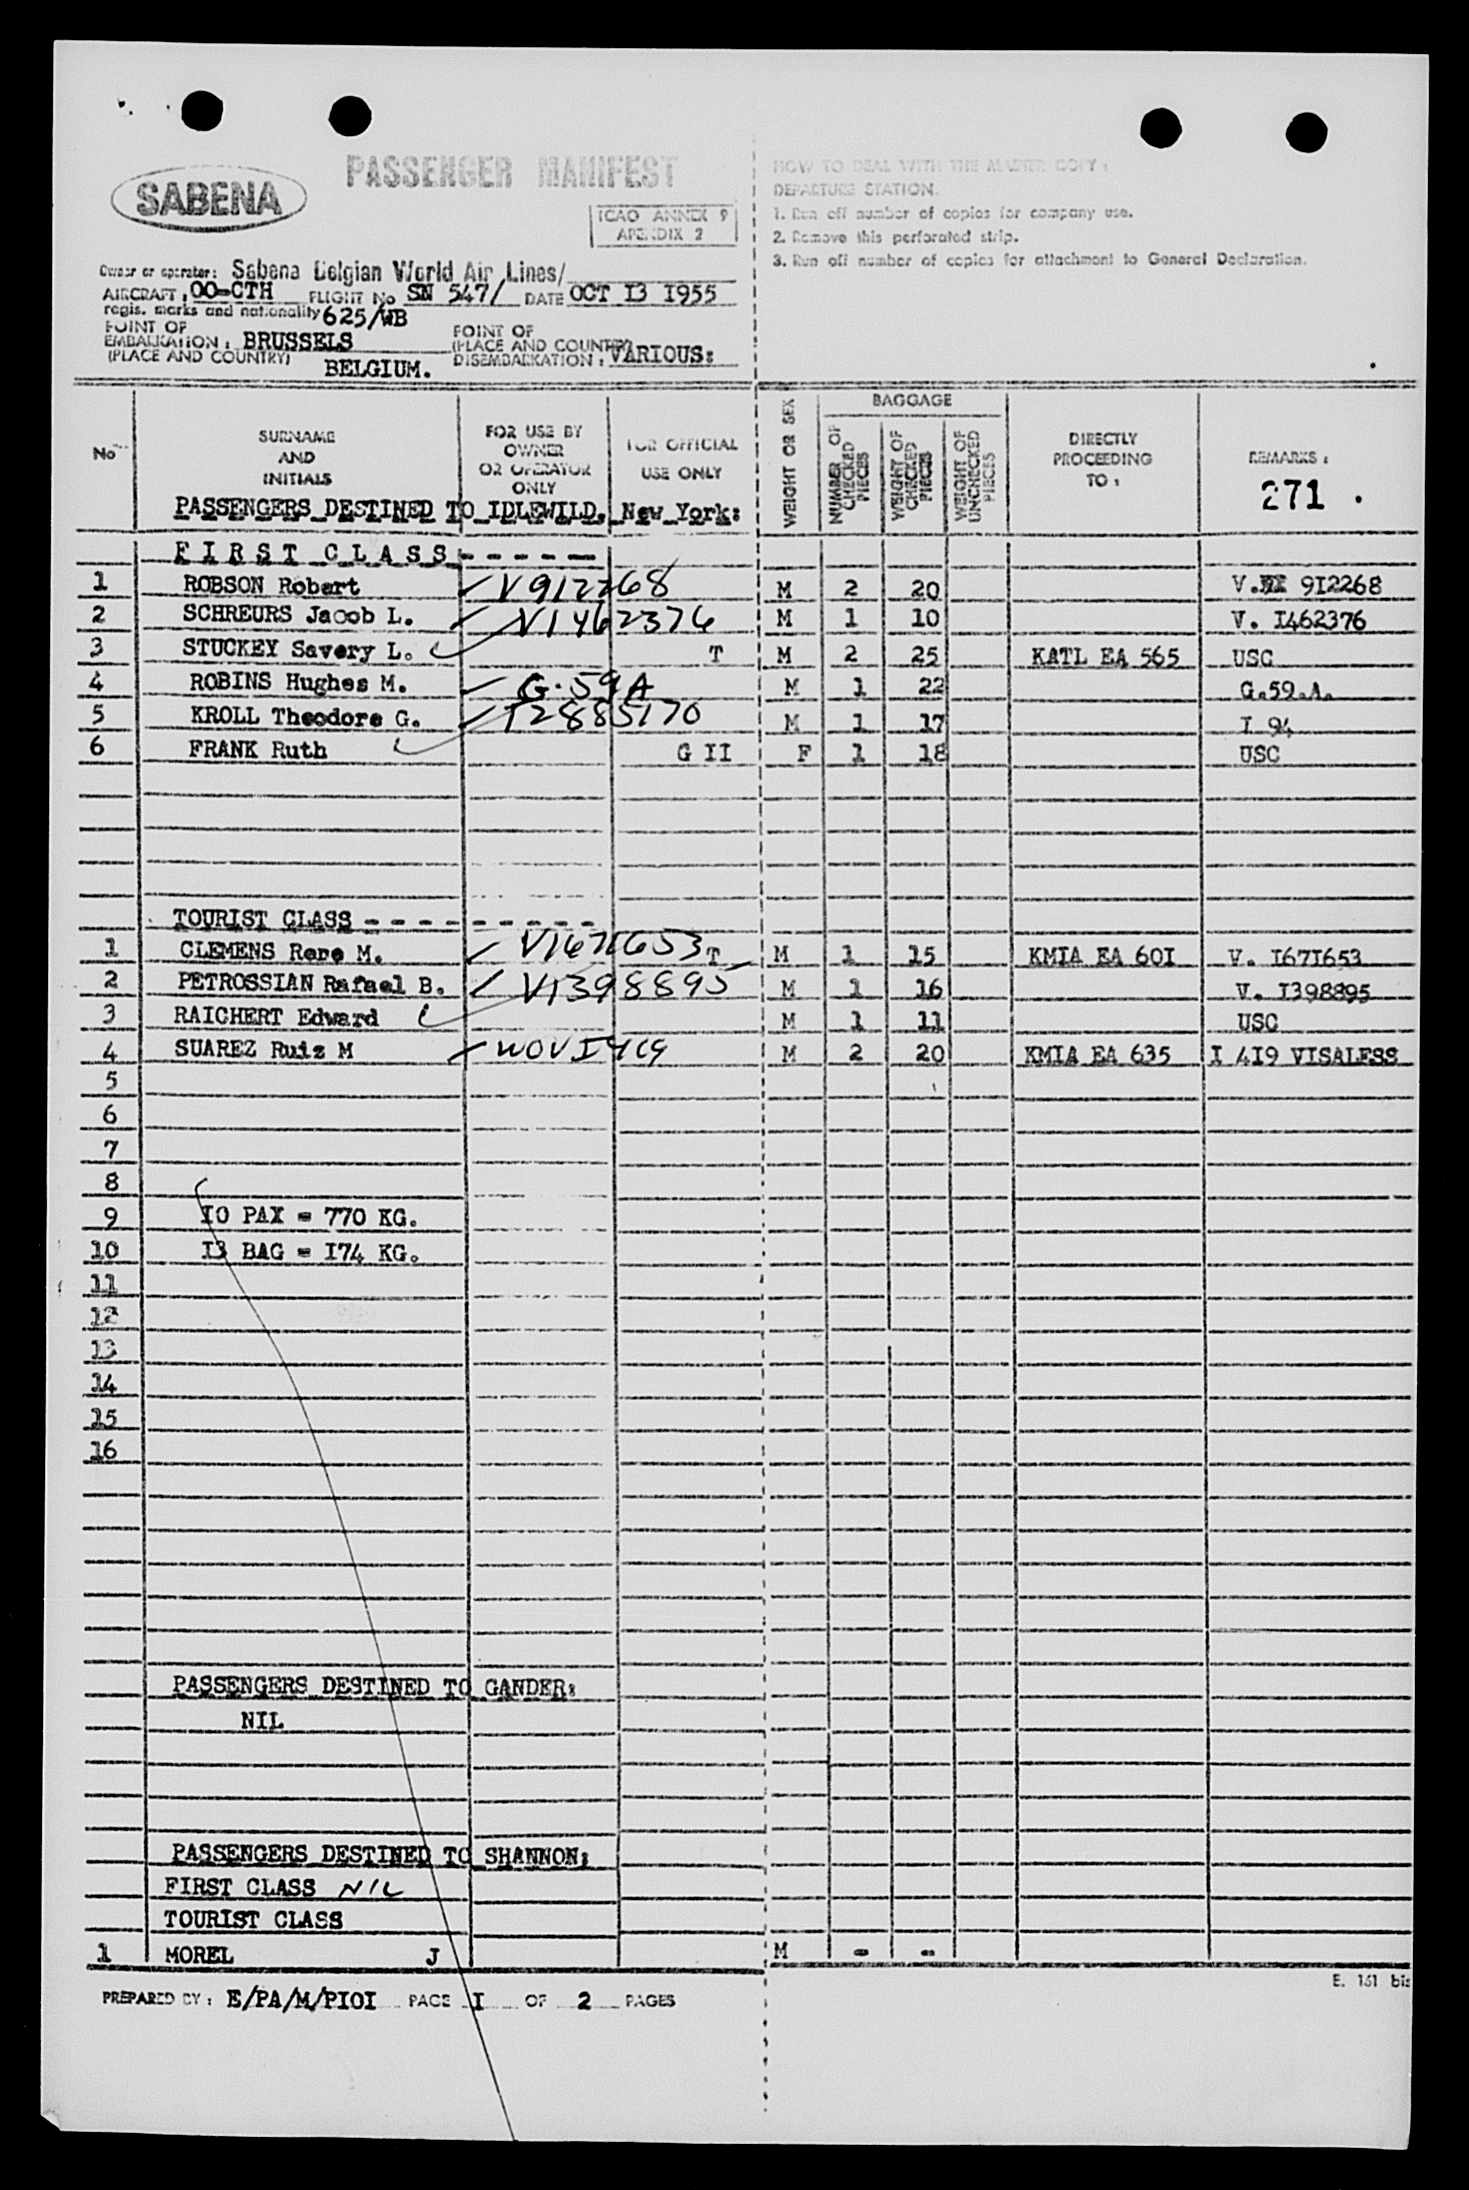 SABENA
PASSENGER MANIFEST
ICAO ANNEX 9
APENDIX 2
HOW TO DEAL WITH THE MASTER COPY :
DEPARTURE STATION.
1. Run off number of copies for company use.
2. Remove this perforated strip.
3. Run off number of copies for attachment to General Declaration.
Owner or operator: Sabena Belgian World Air Lines/
AIRCRAFT, OO-CTH FLIGHT No SN 547/ DATE OCT I3 I955
regis. marks and nationality 625/WB
POINT OF EMBARKATION : BRUSSELS
(PLACE AND COUNTRY) BELGIUM.
POINT OF (PLACE AND COUNTRY) DISEMBARKATION : VARIOUS:
No
SURNAME AND INITIALS
FOR USE BY OWNER OR OPERATOR ONLY
FOR OFFICIAL USE ONLY
WEIGHT OR SEX
BAGGAGE
NUMBER OF CHECKED PIECES
WEIGHT OF CHECKED PIECES
WEIGHT OF UNCHECKED PIECES
DIRECTLY PROCEEDING TO :
REMARKS :
271 .
PASSENGERS DESTINED TO IDLEWILD, New York:
FIRST CLASS - - - - -
1 ROBSON Robert V912268 M 2 20 V. 9I2268
2 SCHREURS Jacob L. V1462376 M 1 10 V. I462376
3 STUCKEY Savery L. T M 2 25 KATL EA 565 USC
4 ROBINS Hughes M. G.59A M 1 22 G.59.A.
5 KROLL Theodore G. I2885170 M 1 17 I 94
6 FRANK Ruth G II F 1 18 USC
TOURIST CLASS - - - - - - - - -
1 CLEMENS Rene M. V1671653 T M 1 15 KMIA EA 60I V. I67I653
2 PETROSSIAN Rafael B. V1398895 M 1 16 V. I398895
3 RAICHERT Edward M 1 11 USC
4 SUAREZ Ruiz M WOV I419 M 2 20 KMIA EA 635 I 4I9 VISALESS
5
6
7
8
9 IO PAX = 770 KG.
10 I3 BAG = I74 KG.
11
12
13
14
15
16
PASSENGERS DESTINED TO GANDER:
NIL
PASSENGERS DESTINED TO SHANNON:
FIRST CLASS NIL
TOURIST CLASS
1 MOREL J M - -
E. 151 bis
PREPARED BY : E/PA/M/PIOI PAGE I OF 2 PAGES